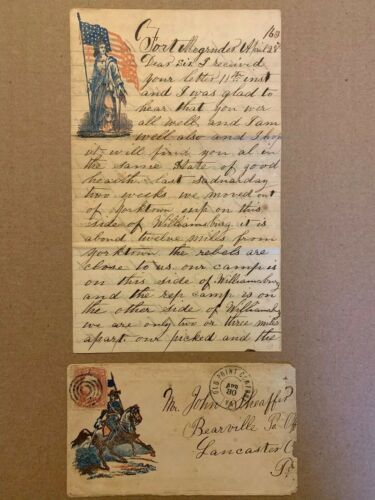 Fort Magruder April 28 /63
Dear Sir I received
your letter 11th inst
and I was glad to
hear that you wer
all well and I am
well also and I hop
it will find you al in
the same state of good
health last sadnarday
two weeks we moved out
of yorktown up on this
side of Williamsburg it
is about twelve miles from
yorktown the rebels are
close to us our camp is
on this side of Williamsburg
and the rep camp is on
the other side of Williamsb
we are only two or three miles
apart our picked and the
OLD POINT COMFORT
APR
30
VA
Mr. John Sheaffer
Bearville Po. Off
Lancaster C
Pa